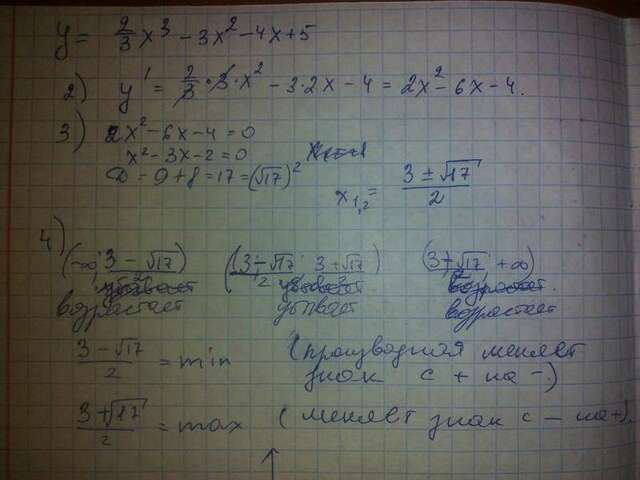 y = 2/3 x³ - 3x² - 4x + 5
2) y' = 2/3 · 3 · x² - 3·2x - 4 = 2x² - 6x - 4.
3) 2x² - 6x - 4 = 0
x² - 3x - 2 = 0
D = 9 + 8 = 17 = (√17)²
x₁,₂ = (3 ± √17)/2
4) (-∞; (3 - √17)/2) ((3 - √17)/2; (3 + √17)/2) ((3 + √17)/2; +∞)
возрастает убывает возрастает
(3 - √17)/2 = min (производная меняет знак с + на -)
(3 + √17)/2 = max (меняет знак с - на +).